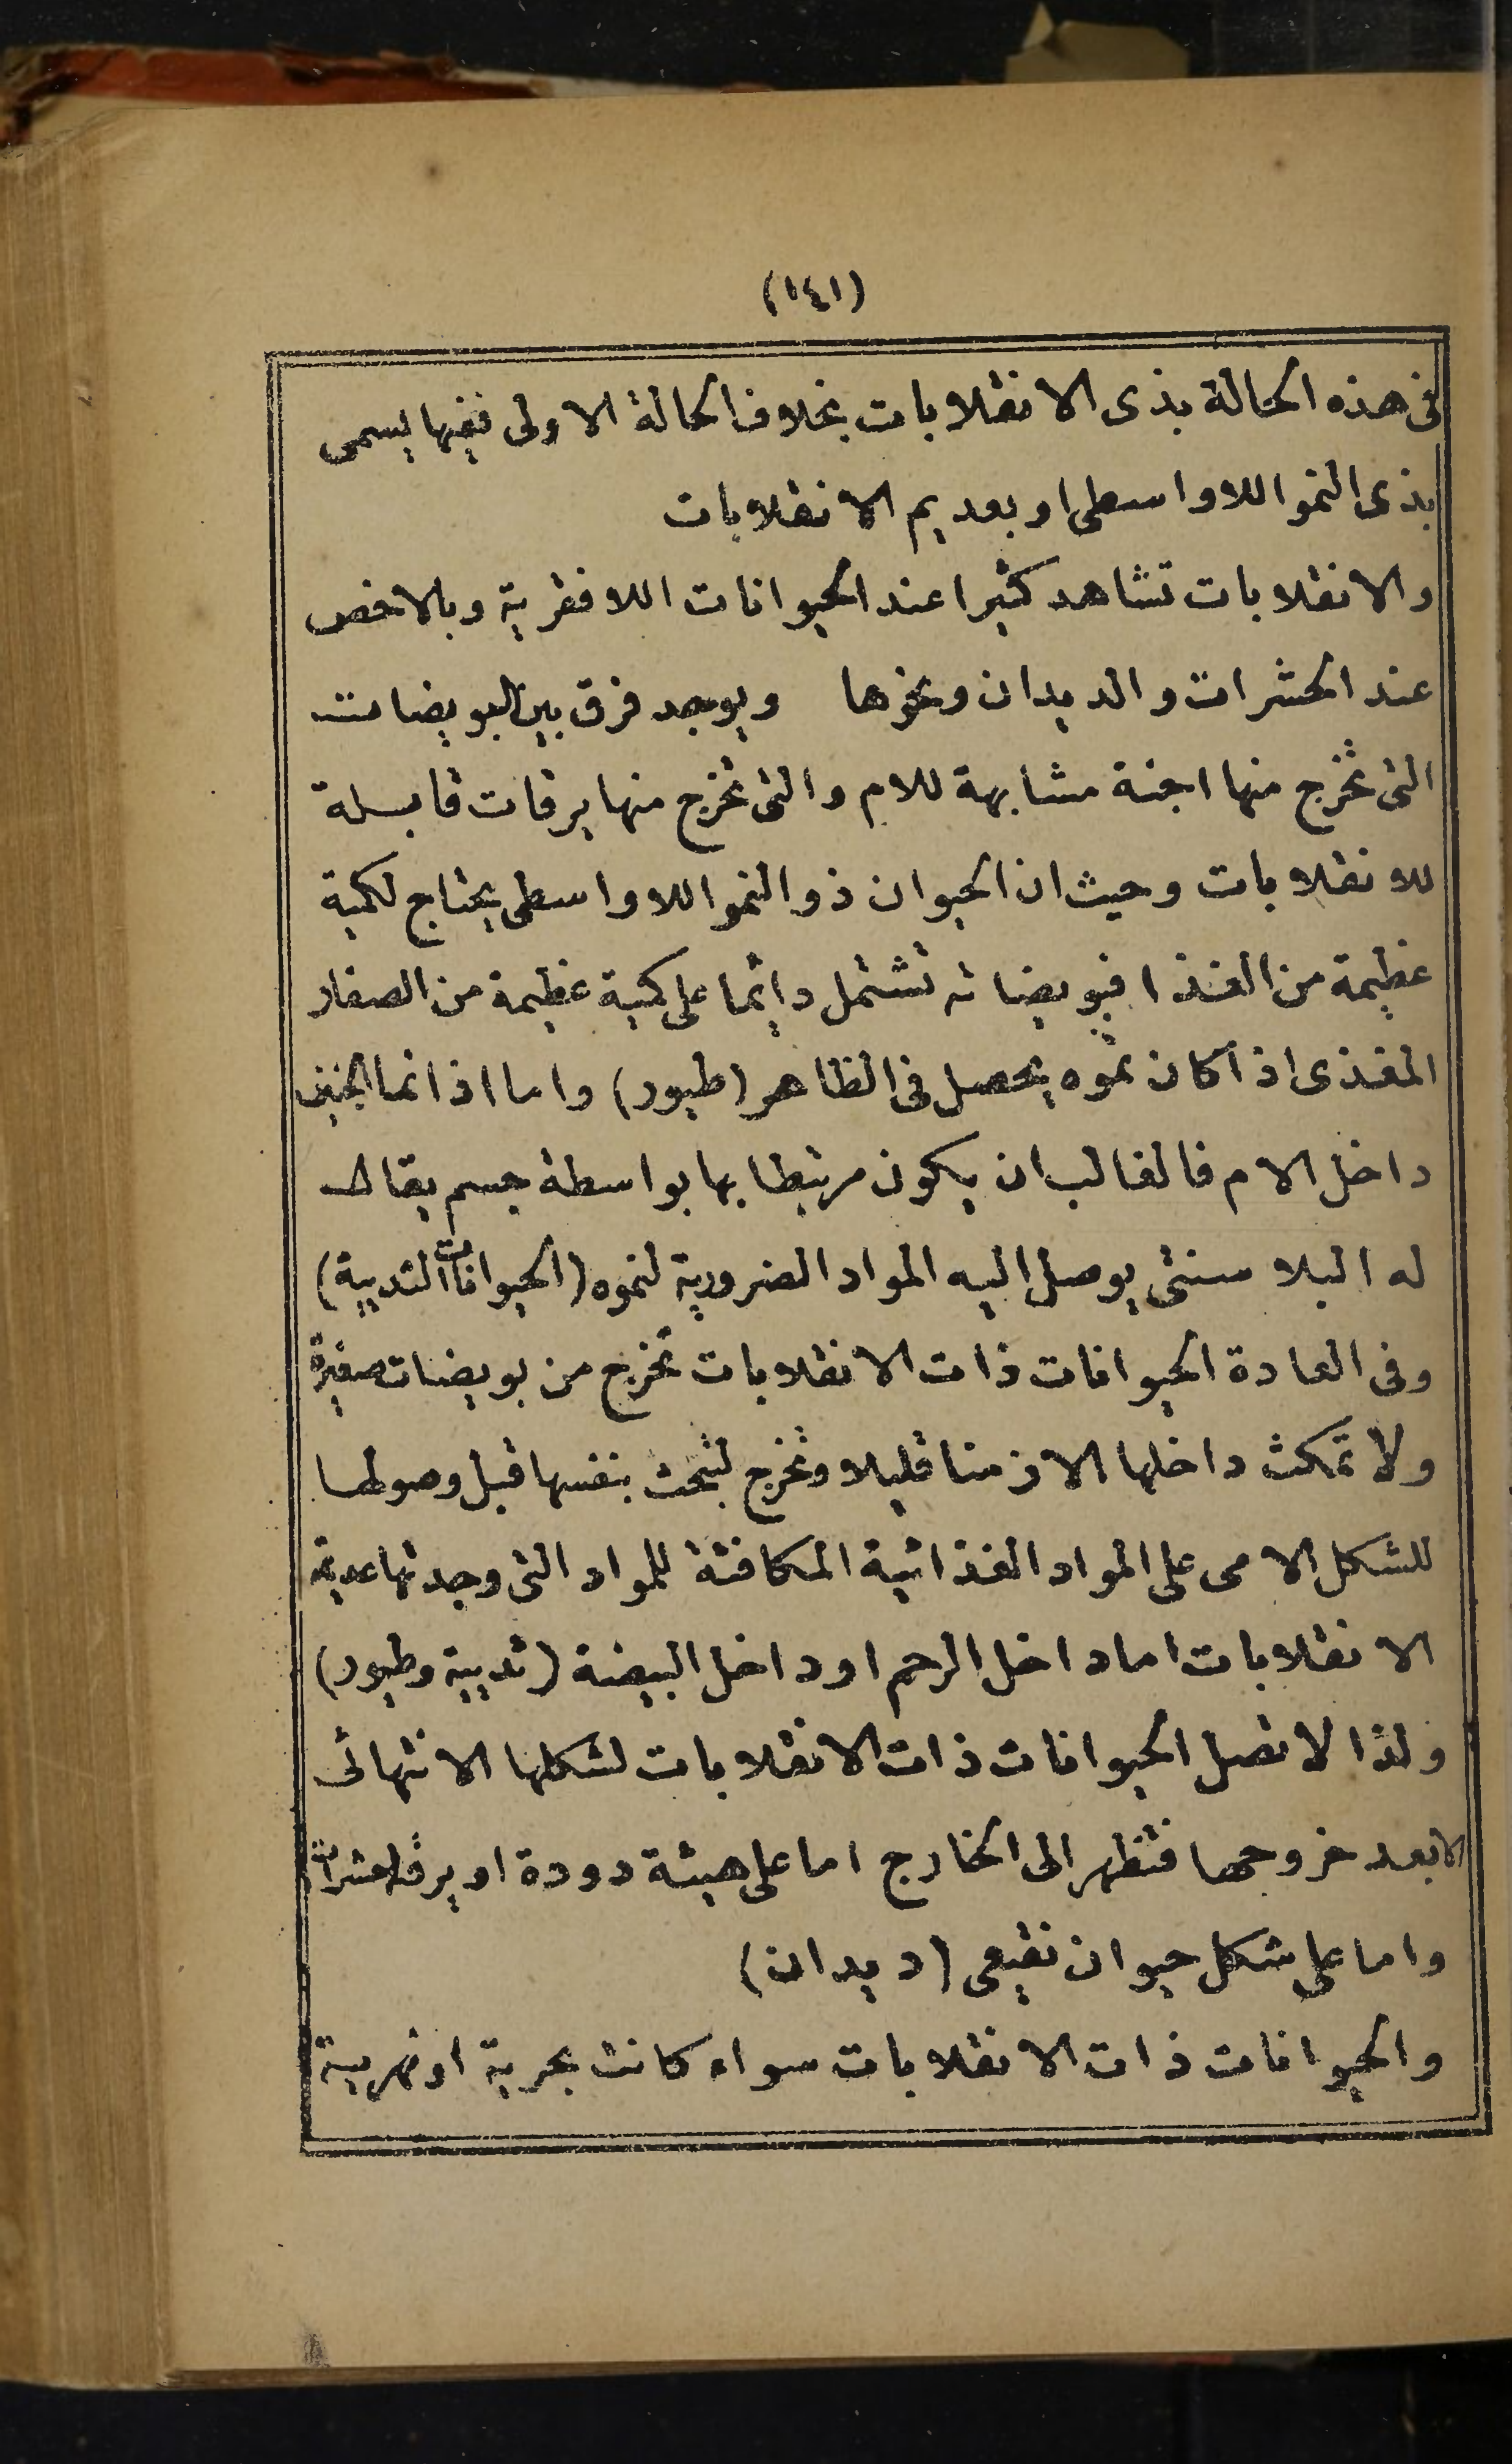 (١٤١)
فى هذه الحالة بذى الانقلابات بخلاف الحالة الاولى ففيها يسمى
بذى النمو اللاواسطى او بعديم الانقلابات
والانقلابات تشاهد كثيرا عند الحيوانات اللافقرية وبالاخص
عند الحشرات والديدان ونحوها ويوجد فرق بين البويضات
التى تخرج منها اجنة مشابهة للام والتى تخرج منها يرقات قابلة
للانقلابات وحيث ان الحيوان ذو النمو اللاواسطى يحتاج لكمية
عظيمة من الغذا فبويضاته تشتمل دائما على كمية عظيمة من الصفار
المغذى اذا كان نموه يحصل فى الظاهر (طيور) واما اذا نما الجنين
داخل الام فالغالب ان يكون مرتبطا بها بواسطة جسم يقال
له البلاسنتى يوصل اليه المواد الضرورية لنموه (الحيوانات الثديية)
وفى العادة الحيوانات ذات الانقلابات تخرج من بويضات صغيرة
ولا تمكث داخلها الا زمنا قليلا وتخرج لتبحث بنفسها قبل وصولها
للشكل الامى على المواد الغذائية المكافئة للمواد التى وجدتها عديمة
الانقلابات اما داخل الرحم او داخل البيضة (ثديية وطيور)
ولذا لا تصل الحيوانات ذات الانقلابات لشكلها الانتهائى
الا بعد خروجها فتظهر الى الخارج اما على هيئة دودة او يرقة (حشرات)
واما على شكل حيوان نقيعى (ديدان)
والحيوانات ذات الانقلابات سواء كانت بحرية او نهرية